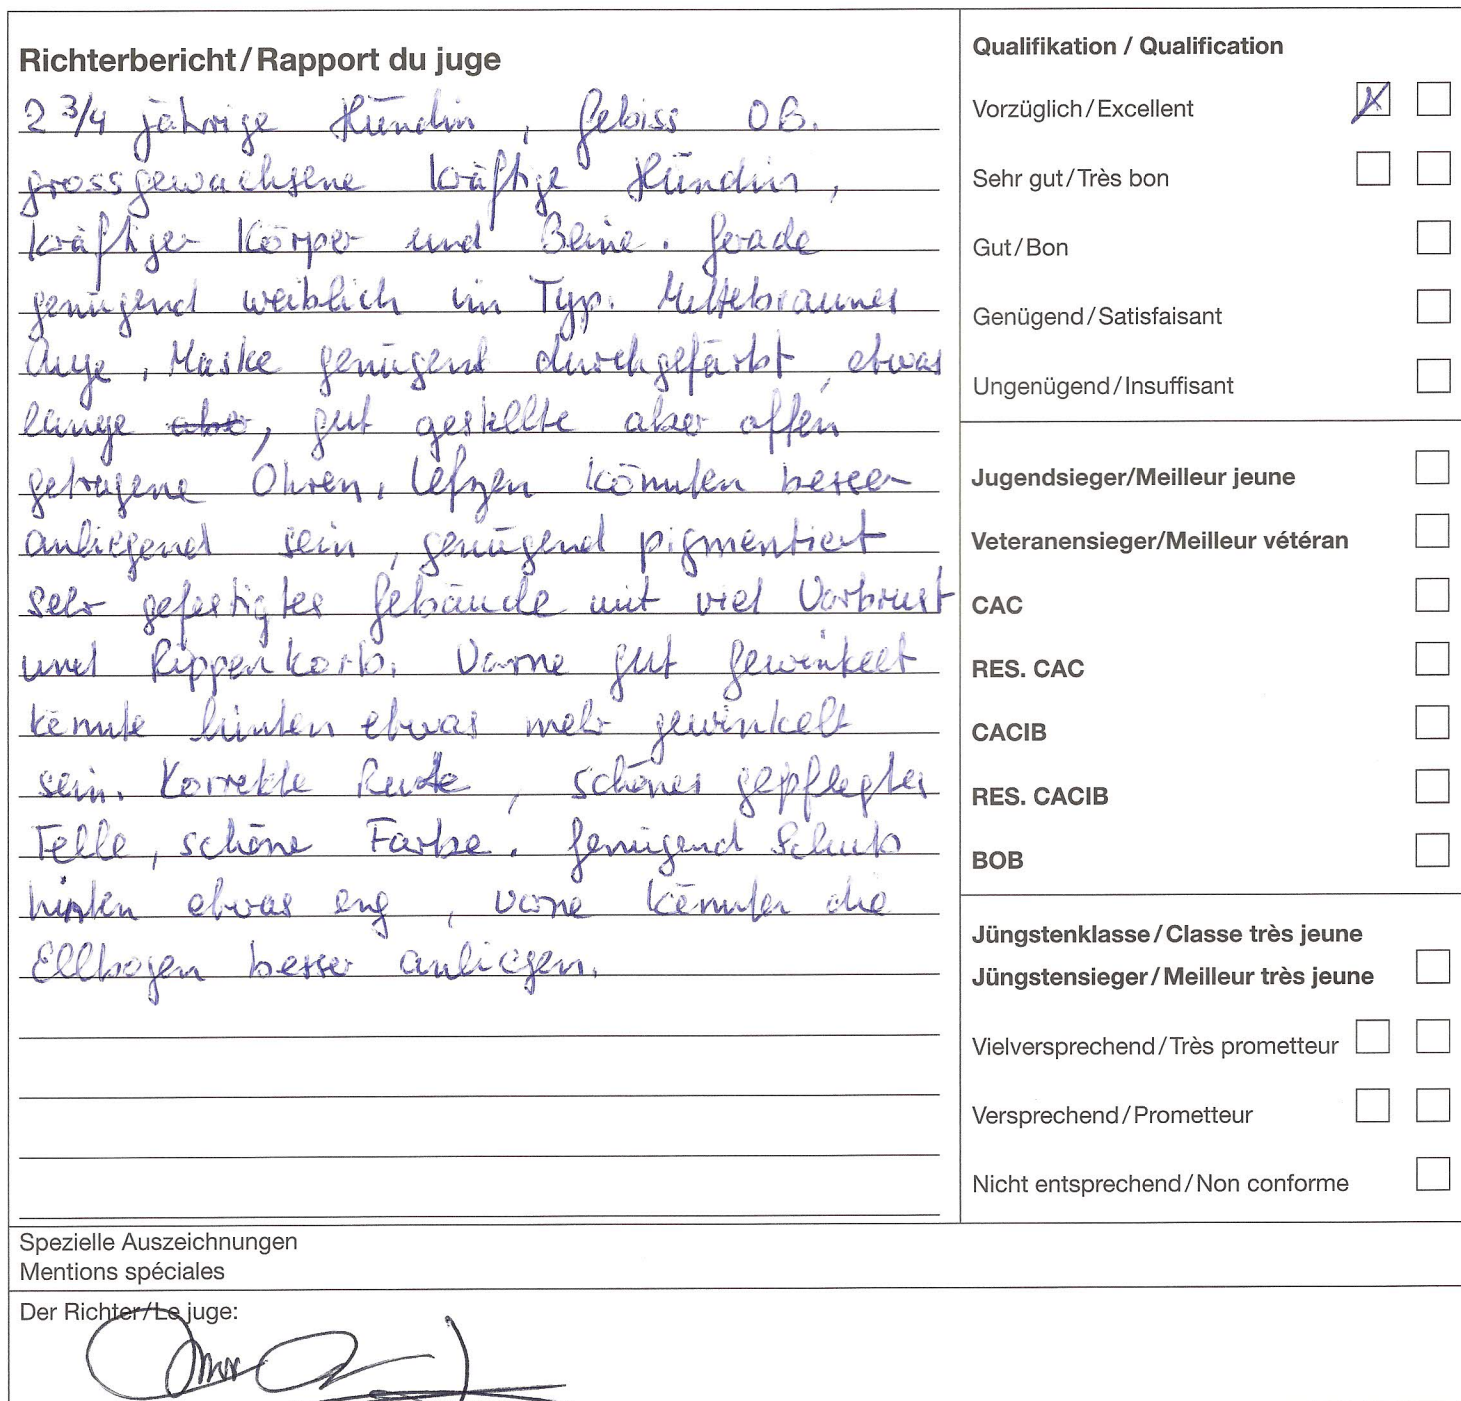 Richterbericht/Rapport du juge
2 3/4 jährige Hündin, Gebiss OB.
grossgewachsene kräftige Hündin,
kräftiger Körper und Beine. Gerade
genügend weiblich im Typ. Mittelbraunes
Auge, Maske genügend durchgefärbt, etwas
lange aber, gut gestellte aber offen
getragene Ohren, Lefzen könnten besser
anliegend sein, genügend pigmentiert
sehr gefestigtes Gebäude mit viel Vorbrust
und Rippenkorb. Vorne gut gewinkelt
könnte hinten etwas mehr gewinkelt
sein. Korrekte Rute, schönes gepflegtes
Felle, schöne Farbe. Genügend Schub
hinten etwas eng, vorne könnten die
Ellbogen besser anliegen.
Qualifikation / Qualification
Vorzüglich/Excellent
Sehr gut/Très bon
Gut/Bon
Genügend/Satisfaisant
Ungenügend/Insuffisant
Jugendsieger/Meilleur jeune
Veteranensieger/Meilleur vétéran
CAC
RES. CAC
CACIB
RES. CACIB
BOB
Jüngstenklasse/Classe très jeune
Jüngstensieger/Meilleur très jeune
Vielversprechend/Très prometteur
Versprechend/Prometteur
Nicht entsprechend/Non conforme
Spezielle Auszeichnungen
Mentions spéciales
Der Richter/Le juge: